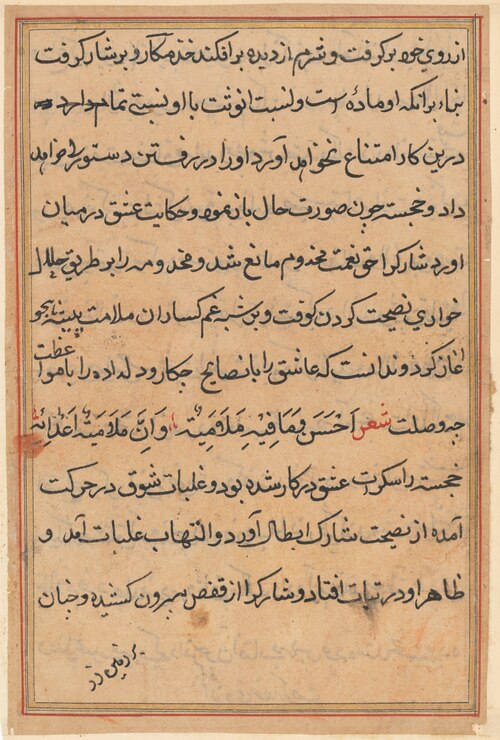 از روی خود برگرفت و شرم از دیده برافکند خنده مکار و بر شارک رفت
بناء برانکه او مادهٔ است و نسبت انوثت با او نسبتی تمام دارد
درین کار امتناع نخواهد آورد او را در رفتن دستوری خواهد
داد و خجسته چون صورت حال باز نمود و حکایت عشق در میان
اورد شارک را حق نعمت مخدوم مانع شد و مخدومه را بر طریق حلال
خواری نصیحت کردن گرفت و بر شبه غمکساران ملامت
اغاز کرد و ندانست که عاشق را با نصایح جکار و دلداده را با مواعظت
جه وصلت شعر اَحْسَن فیه مَلَامِیَة وَاِنَّ مَلَامِیَة اَعْدَائه
خجسته را سکرت عشق در کار شده بود و غلبات شوق در حرکت
آمده از نصیحت شارک ابطال آورد و التهاب غلبات آمد و
ظاهر او در افتاد و شارک را از قفص بیرون کشیده و جنان
بر زمین زد